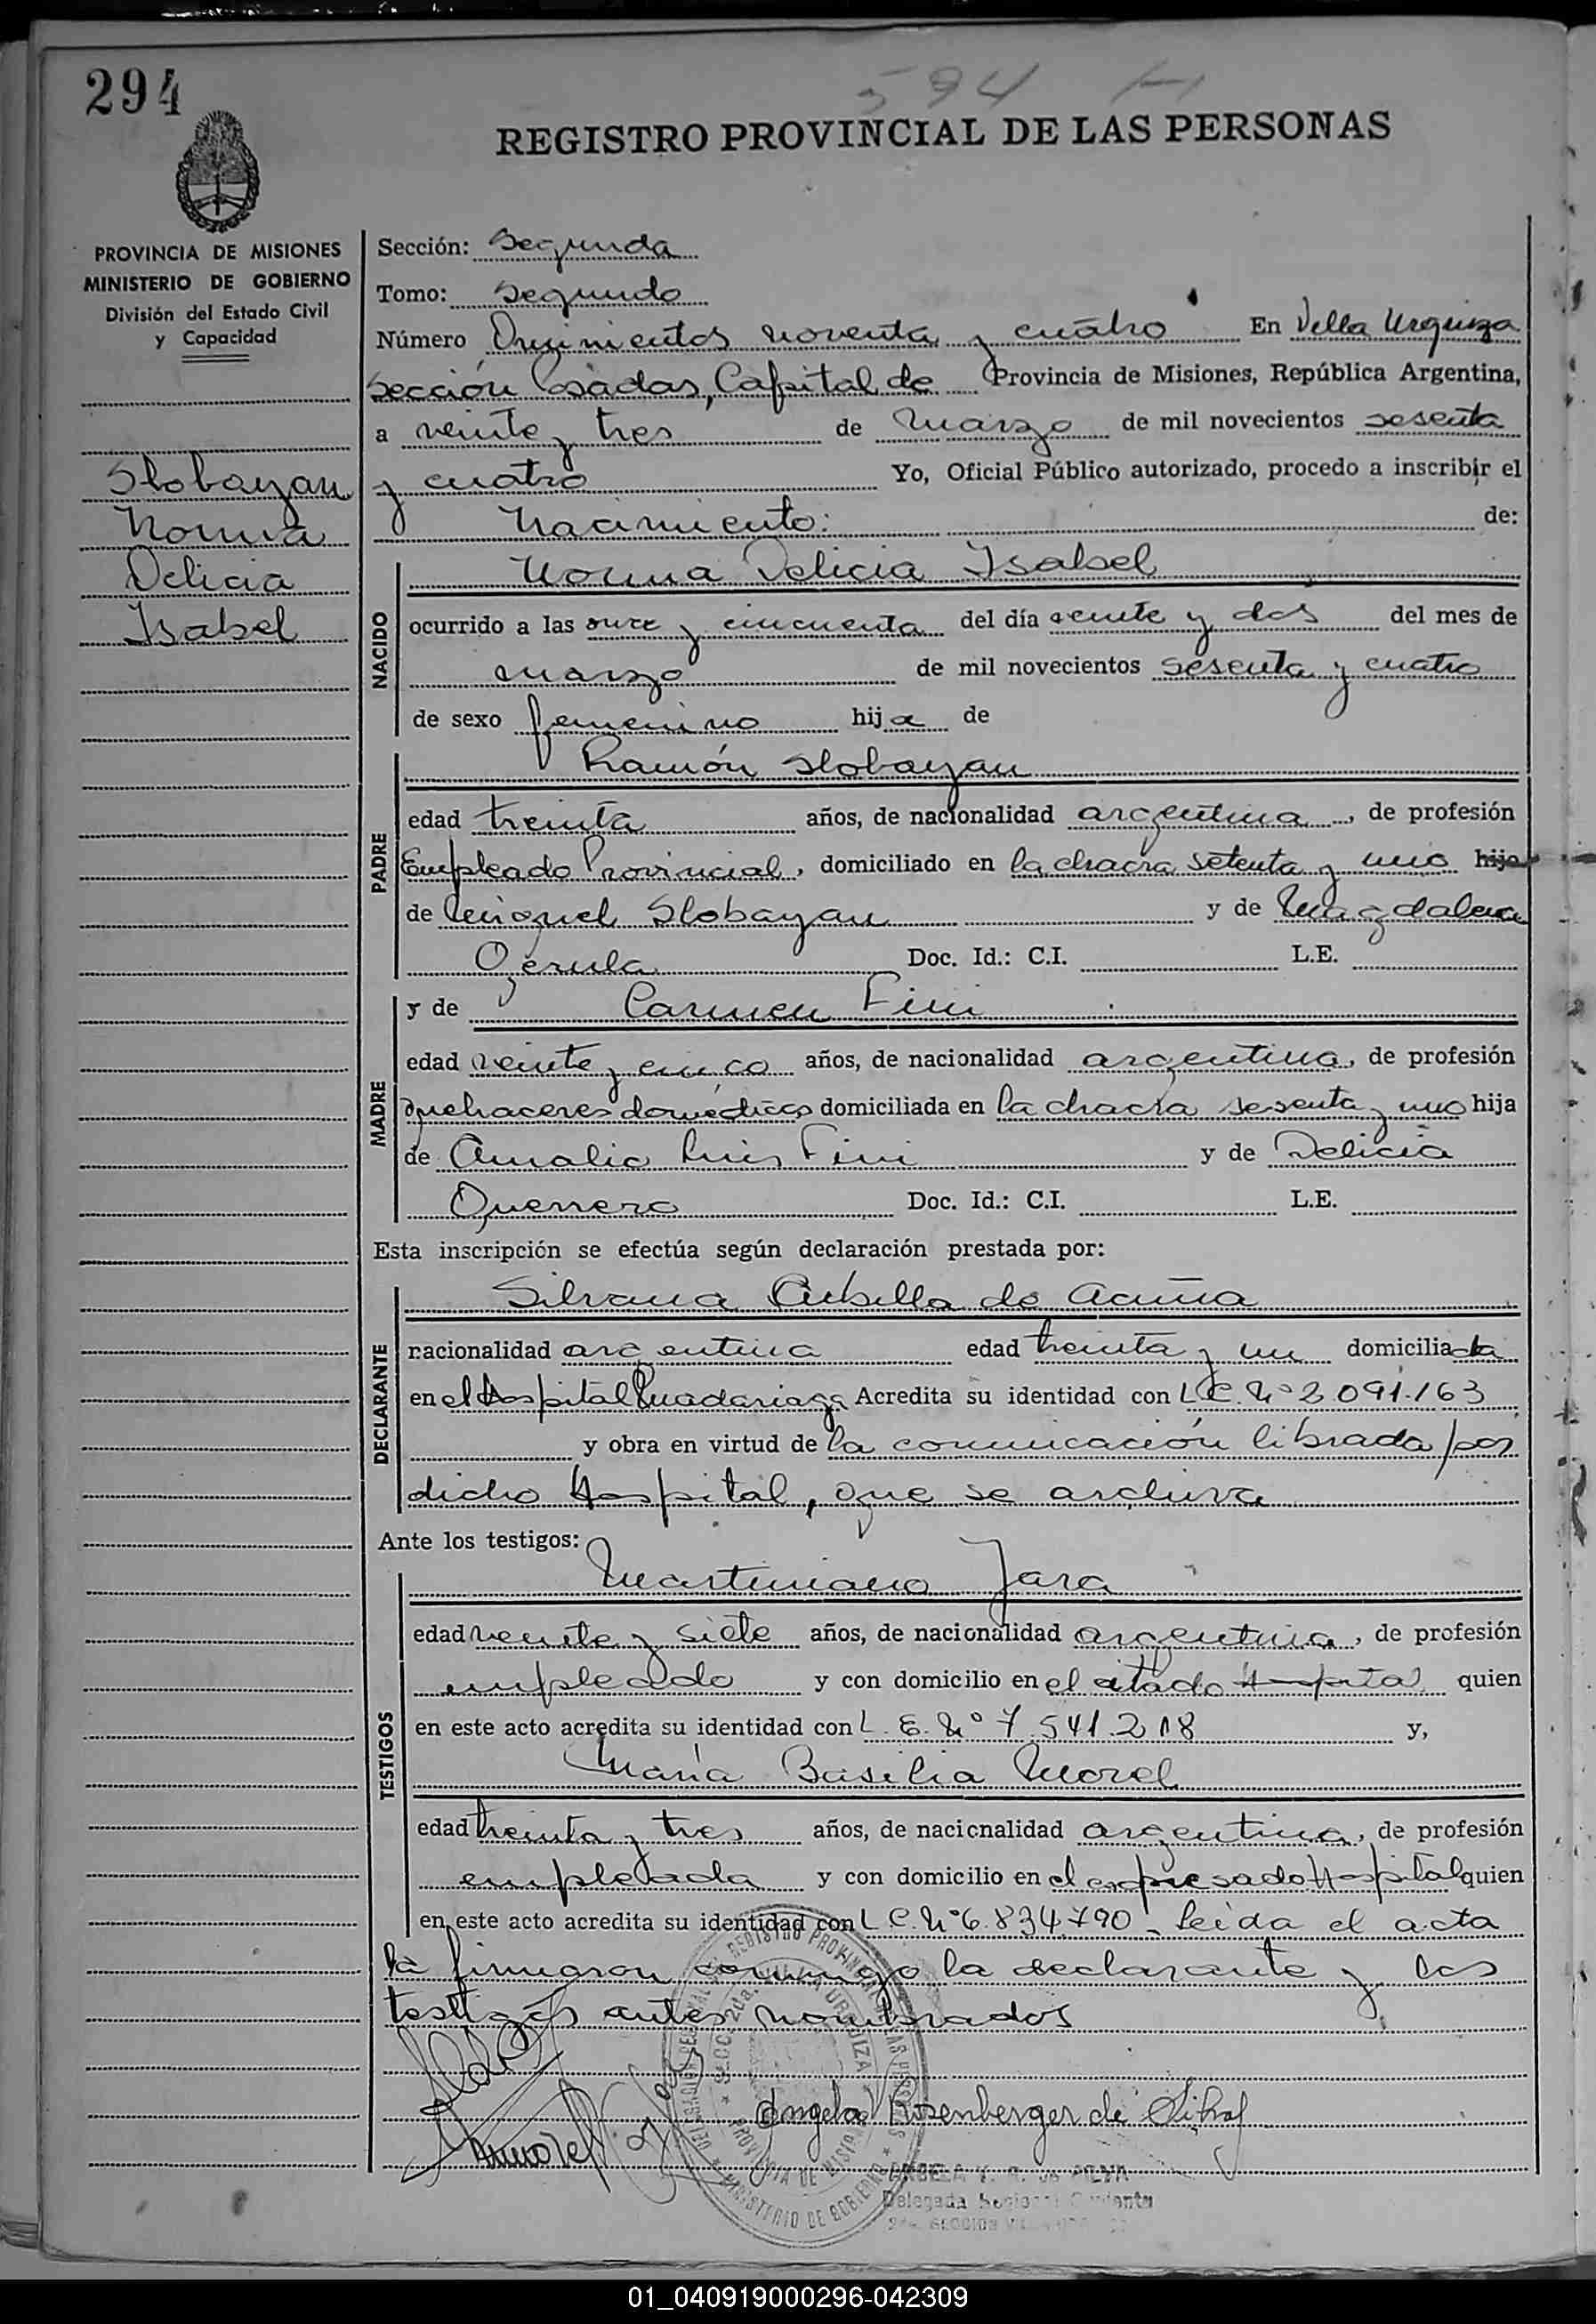 294
594
REGISTRO PROVINCIAL DE LAS PERSONAS
PROVINCIA DE MISIONES
MINISTERIO DE GOBIERNO
División del Estado Civil
y Capacidad
Slobayan
Norma
Delicia
Isabel
Sección: Segunda
Tomo: Segundo
Número Quinientos noventa y cuatro En Villa Urquiza
Sección Posadas, Capital de Provincia de Misiones, República Argentina,
a veinte y tres de marzo de mil novecientos sesenta
y cuatro Yo, Oficial Público autorizado, procedo a inscribir el
Nacimiento: de:
NACIDO
Norma Delicia Isabel
ocurrido a las once y cincuenta del día veinte y dos del mes de
marzo de mil novecientos sesenta y cuatro
de sexo femenino hija de
PADRE
Ramón Slobayan
edad treinta años, de nacionalidad argentina, de profesión
Empleado Provincial, domiciliado en la chacra setenta y uno hijo
de Miguel Slobayan y de Magdalena
Gerula Doc. Id.: C.I. L.E.
MADRE
y de Carmen Fini
edad veinte y cinco años, de nacionalidad argentina, de profesión
quehaceres domésticos domiciliada en la chacra sesenta y uno hija
de Amalio Luis Fini y de Delicia
Guerrero Doc. Id.: C.I. L.E.
Esta inscripción se efectúa según declaración prestada por:
DECLARANTE
Silvana Cubilla de Acuña
nacionalidad argentina edad treinta y un domiciliada
en el Hospital Madariaga Acredita su identidad con L.C. Nº 2.091.163
y obra en virtud de la comunicación librada por
dicho Hospital, que se archiva
Ante los testigos:
TESTIGOS
Martiniano Jara
edad veinte y siete años, de nacionalidad argentina, de profesión
empleado y con domicilio en el citado Hospital quien
en este acto acredita su identidad con L.E. Nº 7.541.218 y,
María Basilia Morel
edad treinta y tres años, de nacionalidad argentina, de profesión
empleada y con domicilio en el expresado Hospital quien
en este acto acredita su identidad con L.C. Nº 6.834.790 - Leída el acta
la firmaron conmigo la declarante y los
testigos antes nombrados
REGISTRO PROVINCIAL DE LAS PERSONAS
SECC. 2da. VILLA URQUIZA
PROVINCIA DE MISIONES
MINISTERIO DE GOBIERNO
Angela Rosenberger de Silva
ANGELA V. R. de SILVA
Delegada
01_040919000296-042309